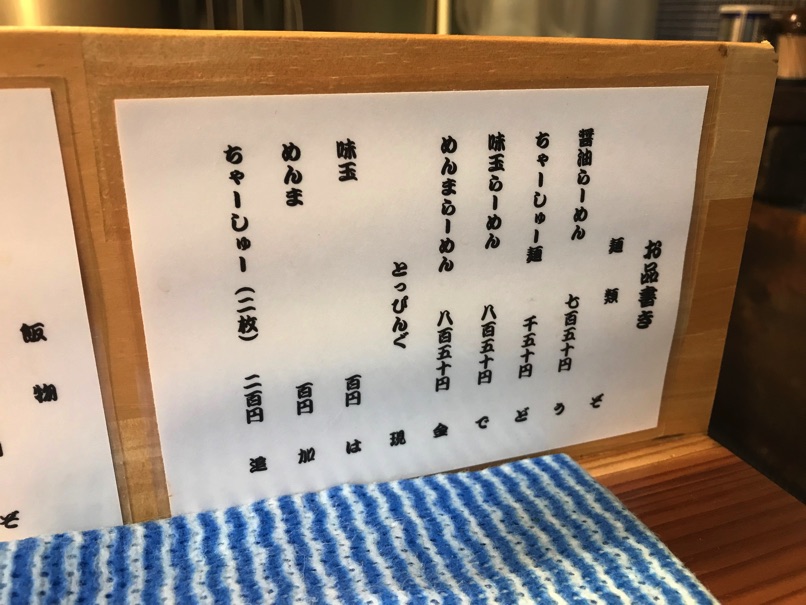 お品書き
麺類
醤油らーめん 七百五十円
ちゃーしゅー麺 千五十円
味玉らーめん 八百五十円
めんまらーめん 八百五十円
とっぴんぐ
味玉 百円
めんま 百円
ちゃーしゅー(二枚) 二百円
追加は現金でどうぞ
飯物
ぞ